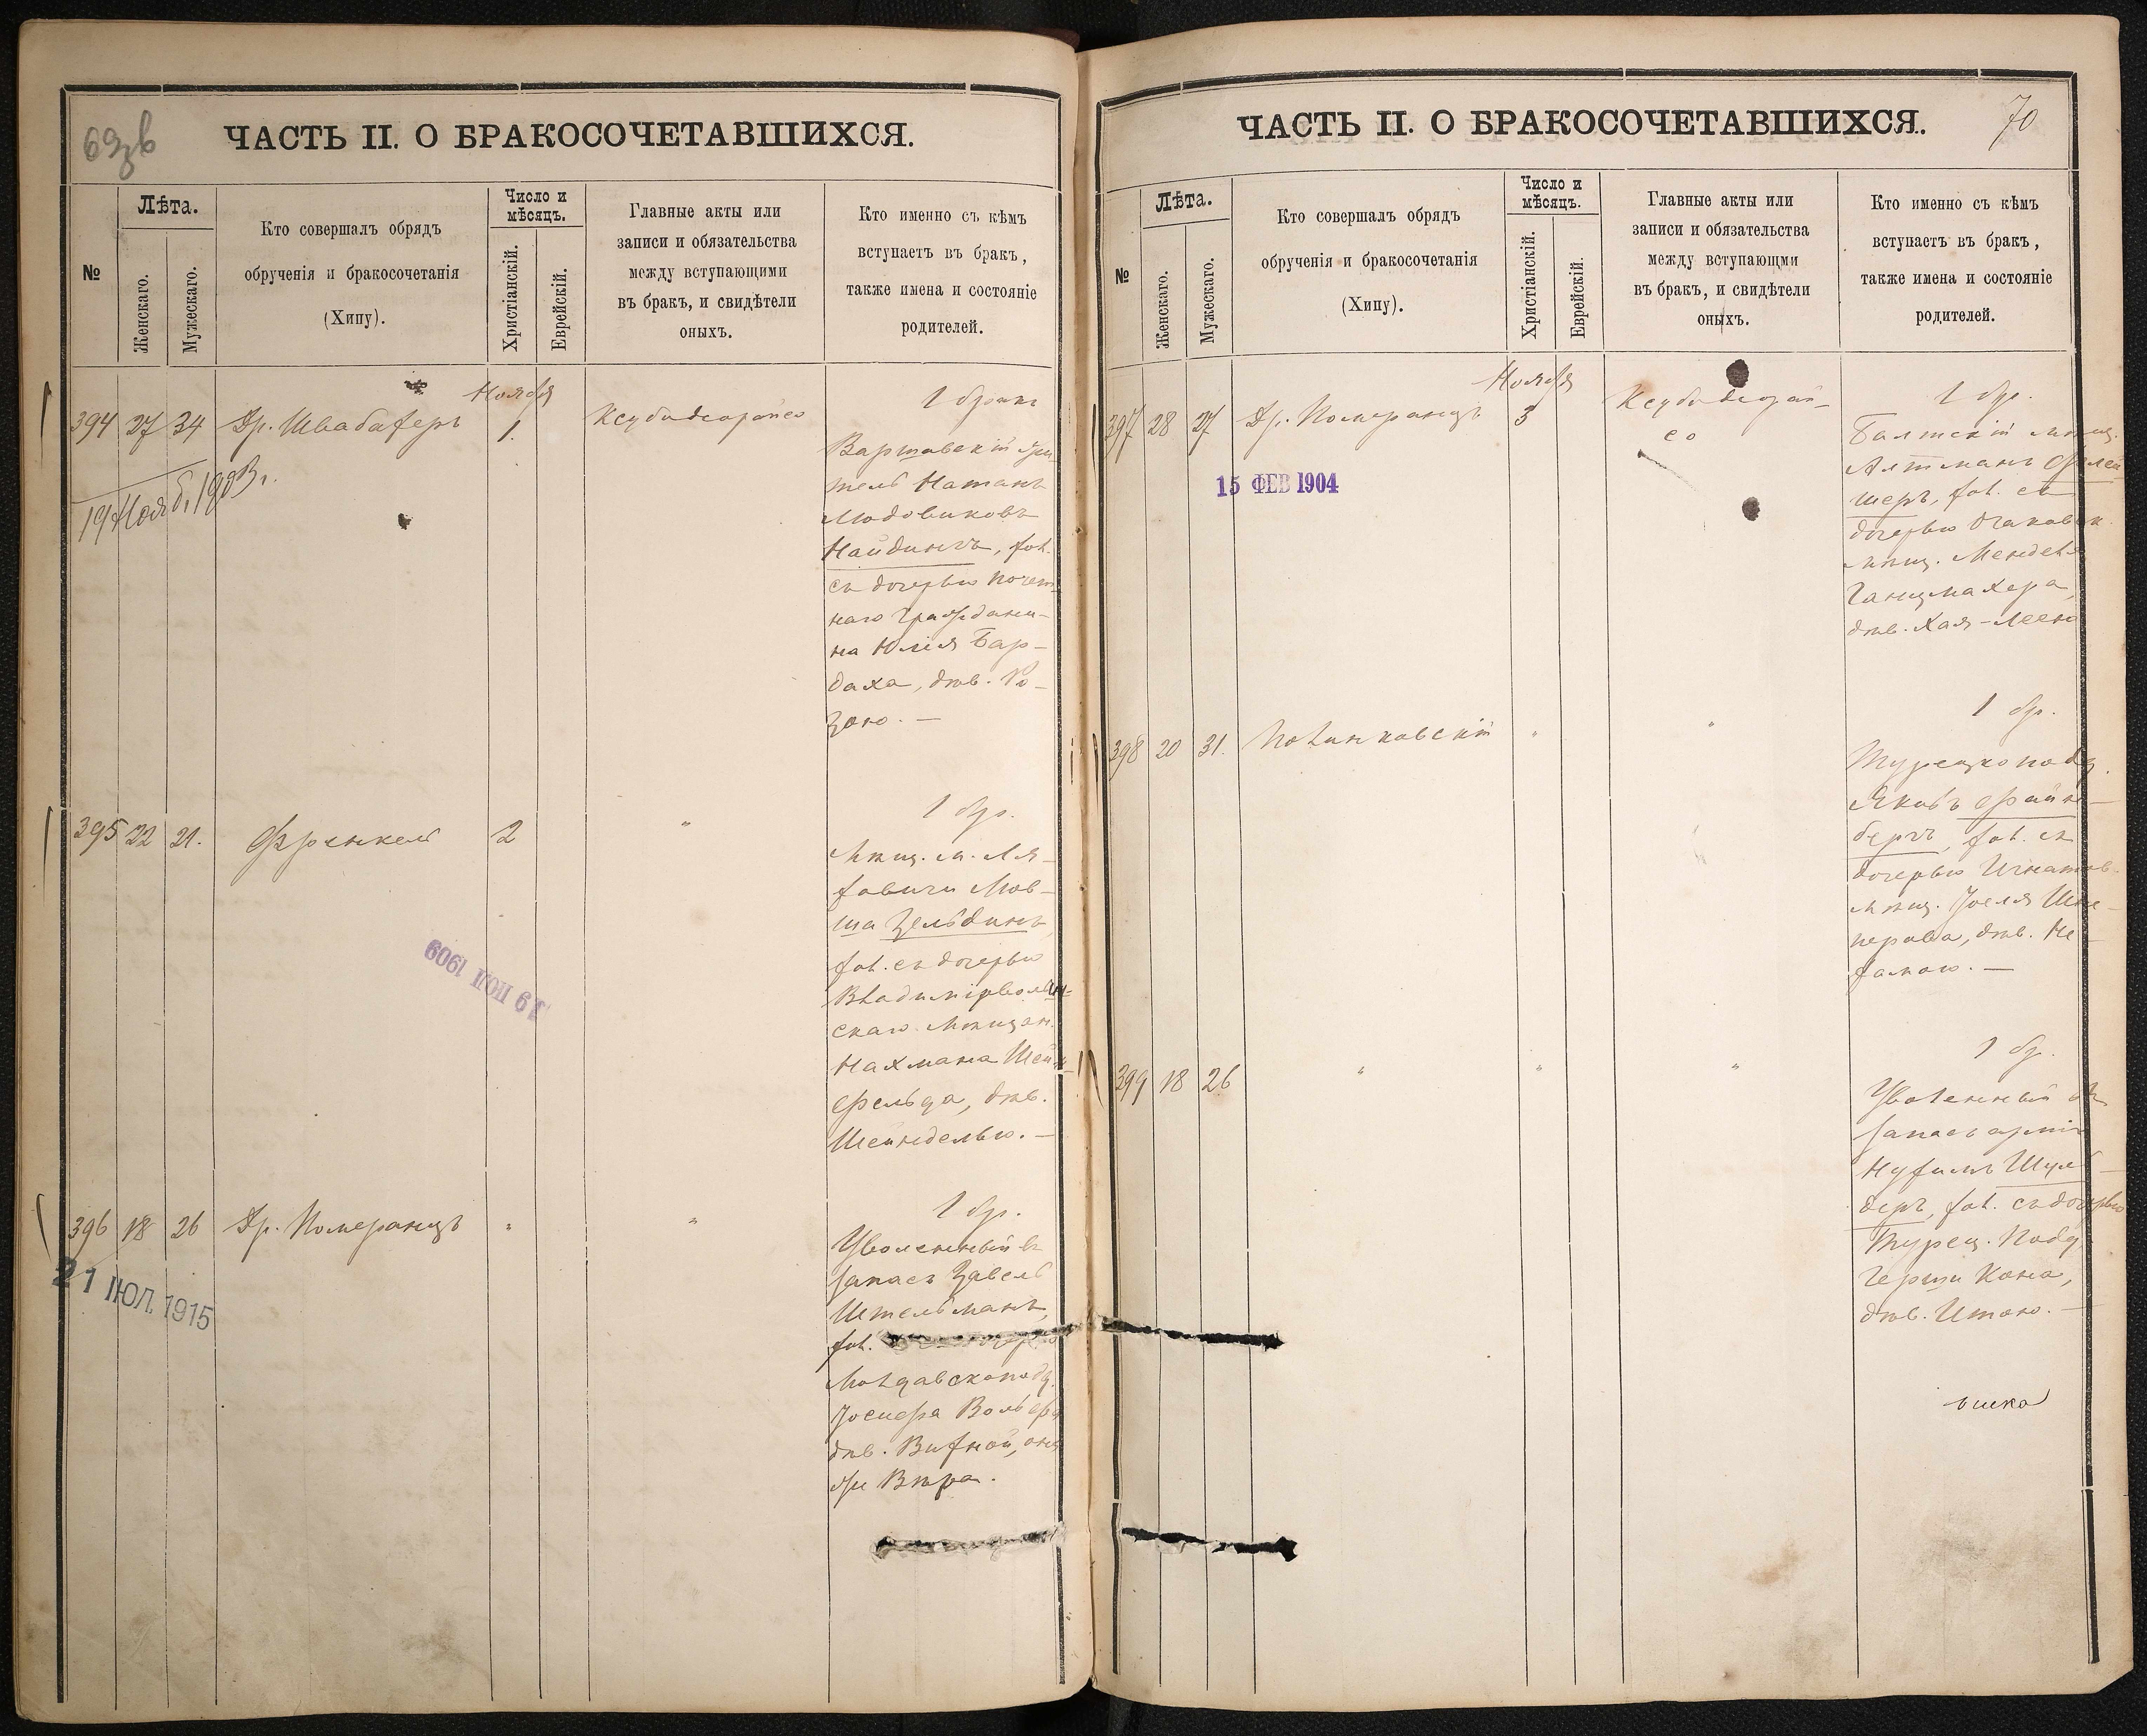 69 зв
ЧАСТЬ II. О БРАКОСОЧЕТАВШИХСЯ.
№
Лѣта.
Женскаго.
Мужескаго.
Кто совершалъ обрядъ
обрученія и бракосочетанія
(Хипу).
Число и
мѣсяцъ.
Христіанскій.
Еврейскій.
Главные акты или
записи и обязательства
между вступающими
въ бракъ, и свидѣтели
оныхъ.
Кто именно съ кѣмъ
вступаетъ въ бракъ,
также имена и состояніе
родителей.
Ноября
394 27 34 Др. Швабахеръ 1.
19 Нояб. 1903 г.
1 бракъ
Варшавскій
Натанъ
Людовиковъ
Найдингъ, хол.
съ дочерью почет-
наго граждани-
на Юлія Бар-
даха, дѣв. Ро-
зою. —
395 22 21. Френкель 2 "
19 ІЮЛ 1909
1 бр.
Мѣщ. м. Ля-
ховичи Мов-
ша Зельдинъ,
хол. съ дочерью
Владимірволын-
скаго мѣщан.
Нахмана Шейн-
фельда, дѣв.
Шейнделью. —
396 18 26 Др. Померанцъ " "
21 ІЮЛ. 1915
1 бр.
Уволенный въ
запасъ Завель
Штельманъ,
хол.
Молдавскоподд.
Іосифа Вольфа
дѣв. Визной, она
же Вѣра.
70
ЧАСТЬ II. О БРАКОСОЧЕТАВШИХСЯ.
№
Лѣта.
Женскаго.
Мужескаго.
Кто совершалъ обрядъ
обрученія и бракосочетанія
(Хипу).
Число и
мѣсяцъ.
Христіанскій.
Еврейскій.
Главные акты или
записи и обязательства
между вступающми
въ бракъ, и свидѣтели
оныхъ.
Кто именно съ кѣмъ
вступаетъ въ бракъ,
также имена и состояніе
родителей.
Ноября
397 28 27 Др. Померанцъ 3
15 ФЕВ 1904
1 бр.
Балтскій мѣщ.
Алтманъ Флей-
шеръ, хол. съ
дочерью Очаковск.
мѣщ. Менделя
Ганцмахера,
дѣв. Хая-Леею
398 20 31. Полинковскій " "
1 бр.
Турецкоподд.
Яковъ Файн-
бергъ, хол. съ
дочерью Игнатов.
мѣщ. Іоеля Шне-
перова, дѣв. Не-
хамою. —
399 18 26 " " "
1 бр.
Уволенный въ
запасъ арміи
Нухимъ Шуль-
деръ, хол. съ дочерью
Турец. подд.
Герши Кана,
дѣв. Итою. —